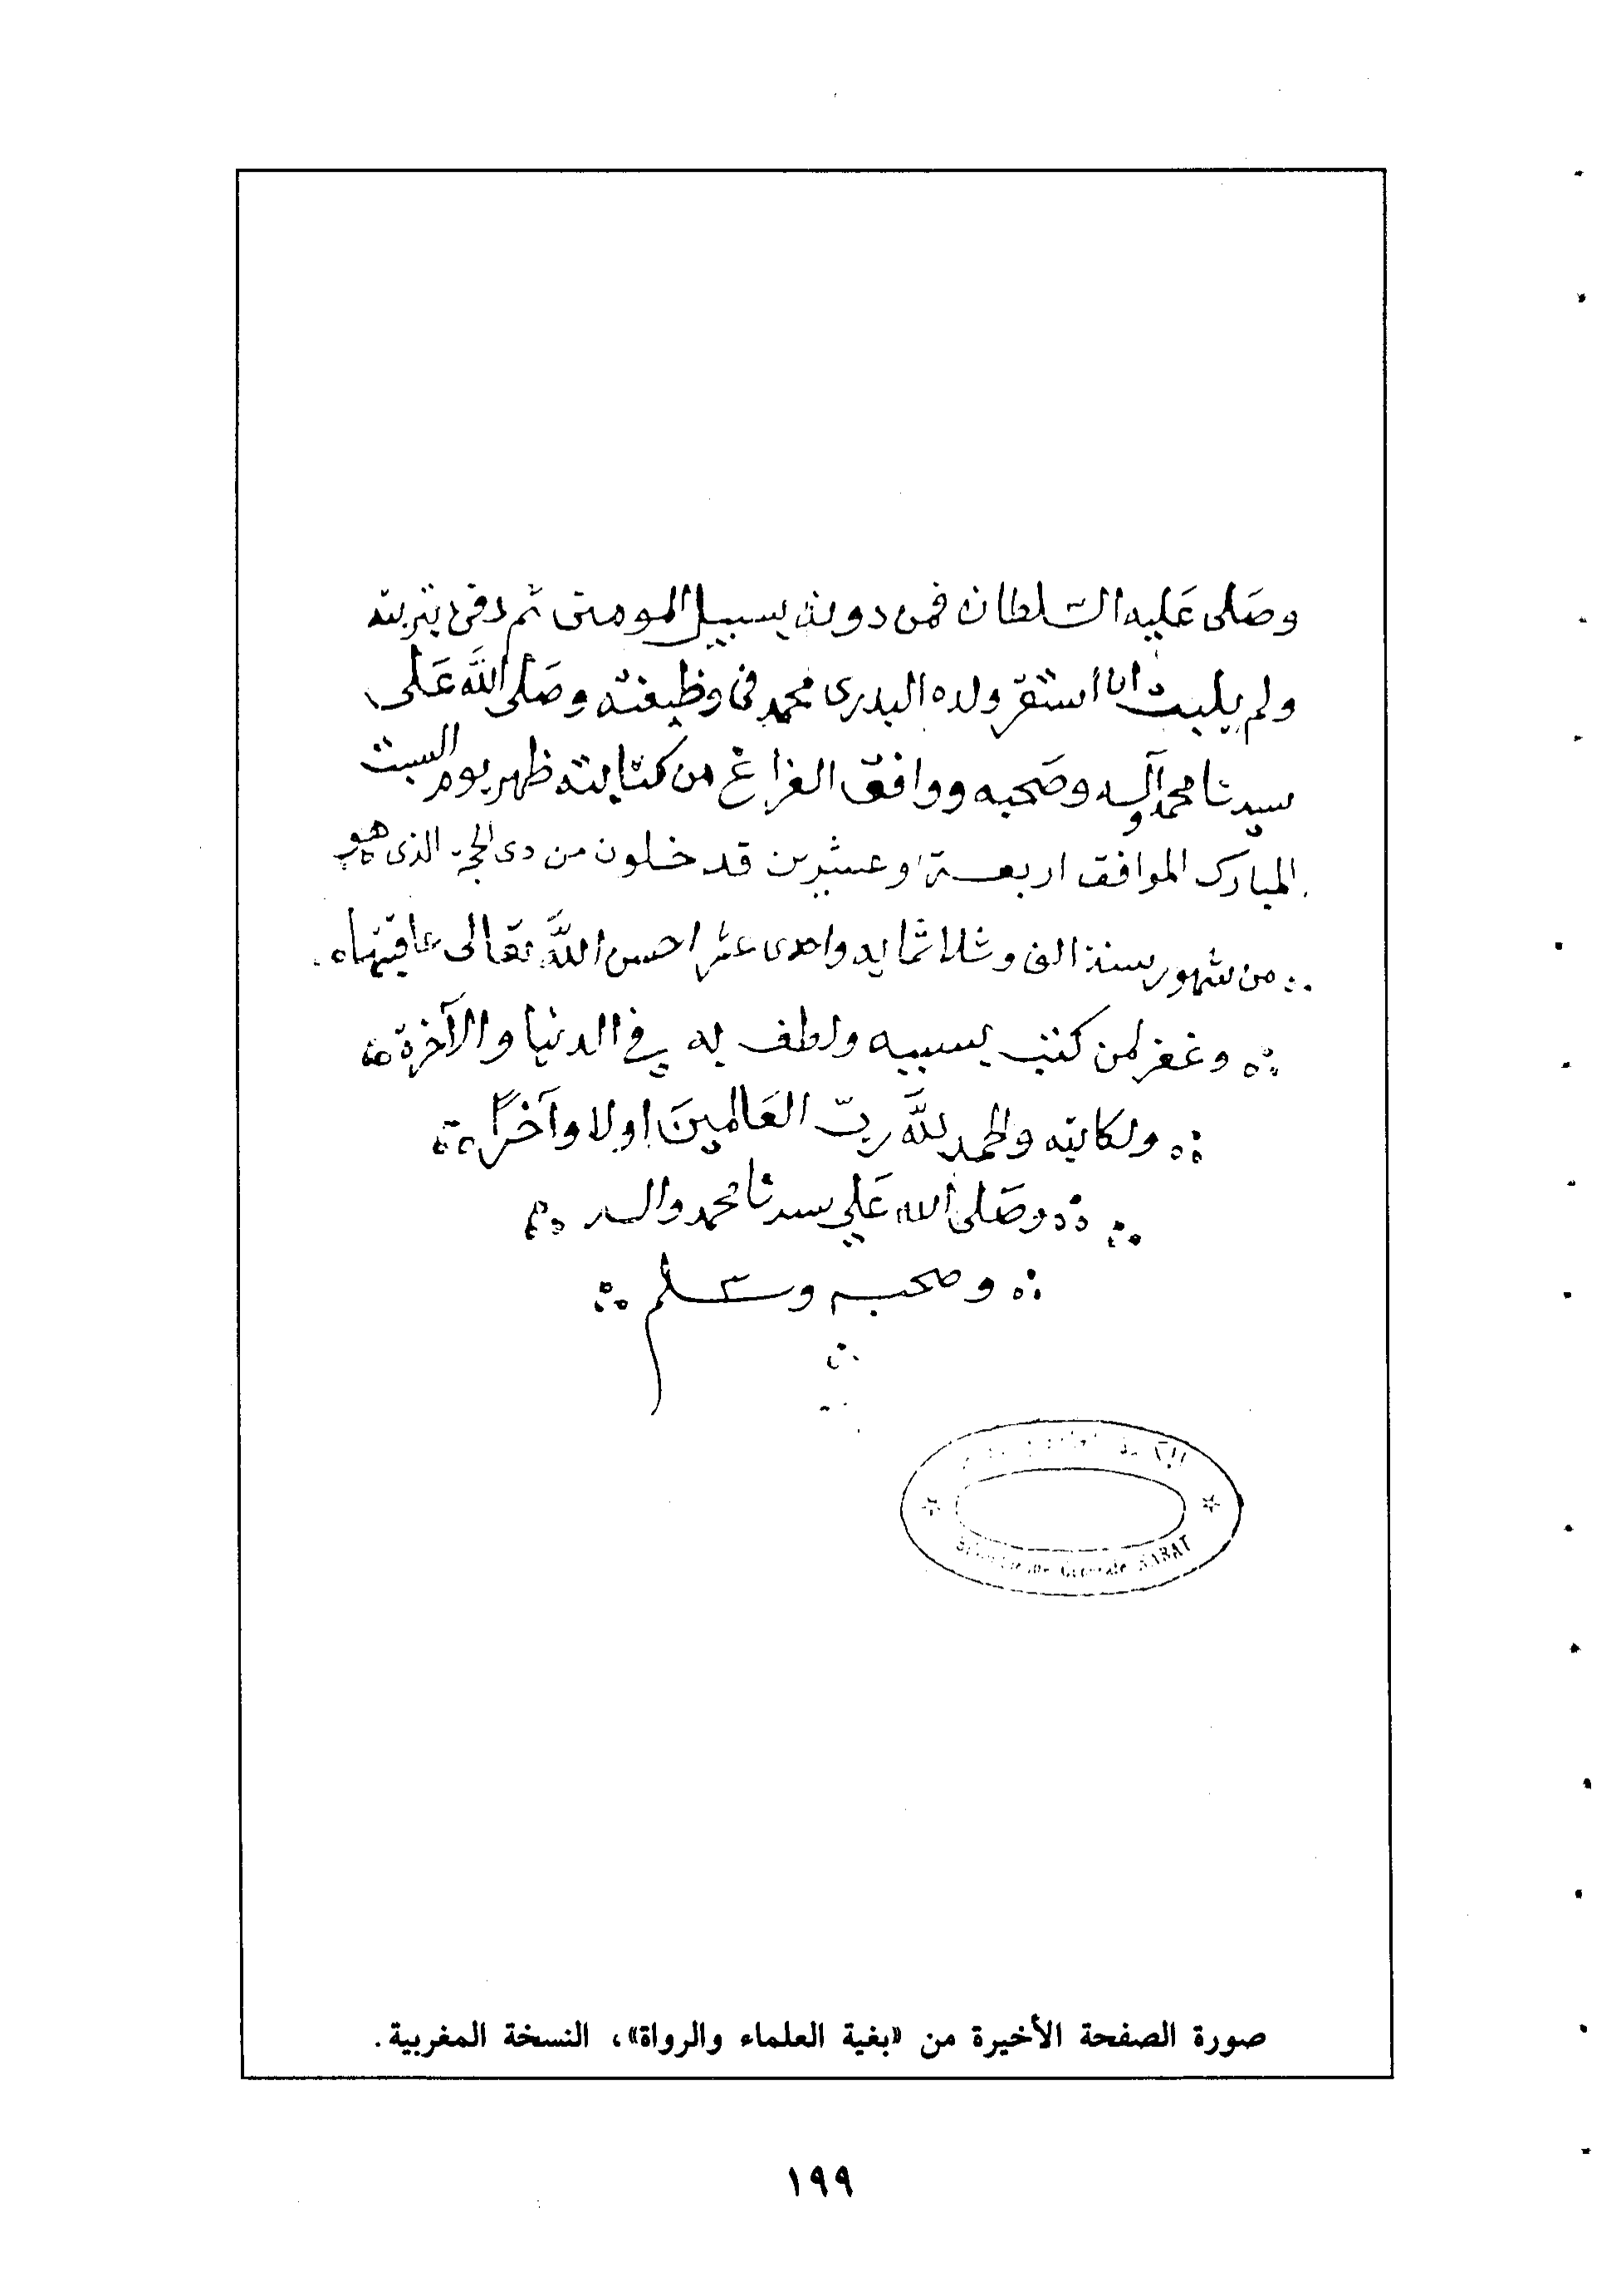 وصَلى عَليه السلطان فمن دونه بسبيل المومنى ثم دفن بتربته
ولم يلبث ان استقر ولده البدرى محمد فى وظيفته وصَلى اللَّه عَلى
سيدنا محمد وآله وصَحبه ووافق الفراغ من كتابته ظهر يوم السبت
المبارك الموافق اربعة وعشرين قد خلون من دى الحجة الذى هو
من شهور سنة الف وثلاثمايه واحدى عشر احسن اللَّه تعالى عاقبتها
وغفر لمن كتب بسببه ولطف به في الدنيا والآخرة
ولكاتبه والحمد للَّه ربّ العَالمينَ اولا وآخرًا
وصَلى الله عَلي سيدنا محمد واله
وصحبه وسلم
Bibliothèque Générale RABAT
صورة الصفحة الأخيرة من «بغية العلماء والرواة»، النسخة المغربية.
١٩٩